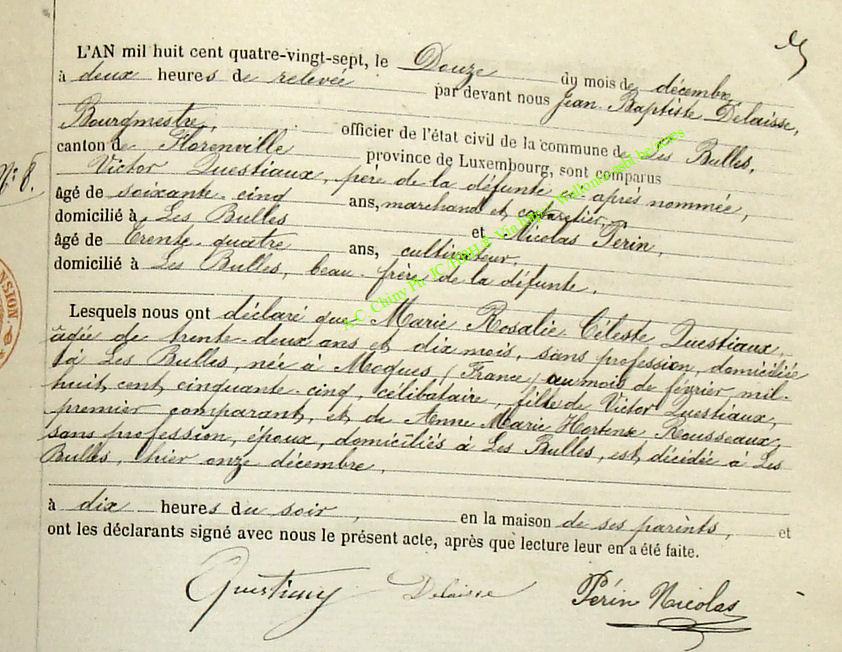 L'AN mil huit cent quatre-vingt-sept, le Douze du mois de décembre,
à deux heures de relevée par devant nous Jean Baptiste Delaisse,
Bourgmestre, officier de l'état civil de la commune de Les Bulles,
canton de Florenville province de Luxembourg, sont comparus
N° 8.
Victor Questiaux, père de la défunte ci-après nommée,
âgé de soixante-cinq ans, marchand et cabaretier,
domicilié à Les Bulles et Nicolas Perin,
âgé de trente-quatre ans, cultivateur,
domicilié à Les Bulles, beau-frère de la défunte.
Lesquels nous ont déclaré que Marie Rosalie Céleste Questiaux,
âgée de trente-deux ans et dix mois, sans profession, domiciliée
à Les Bulles, née à Mogues (France) au mois de février mil-
huit cent cinquante-cinq, célibataire, fille de Victor Questiaux,
premier comparant, et de Anne Marie Hortense Rousseaux,
sans profession, époux, domiciliés à Les Bulles, est décédée à Les
Bulles, hier onze décembre,
à dix heures du soir, en la maison de ses parents, et
ont les déclarants signé avec nous le présent acte, après que lecture leur en a été faite.
Questiaux Delaisse Périn Nicolas
NSION